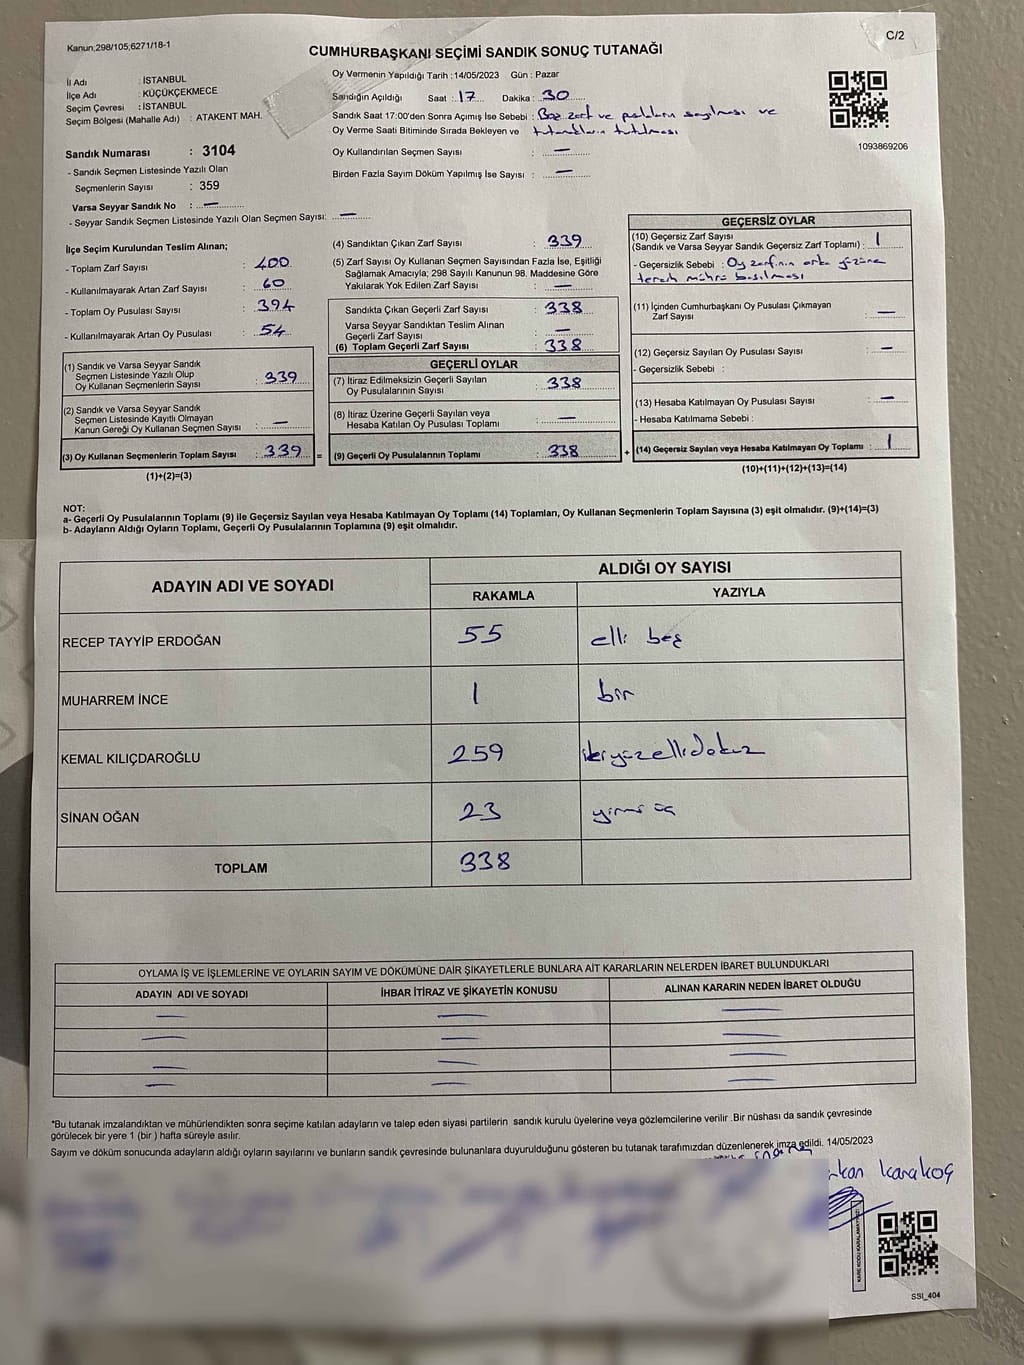 Kanun;298/105;6271/18-1
C/2
CUMHURBAŞKANI SEÇİMİ SANDIK SONUÇ TUTANAĞI
İl Adı : İSTANBUL
İlçe Adı : KÜÇÜKÇEKMECE
Seçim Çevresi : İSTANBUL
Seçim Bölgesi (Mahalle Adı) : ATAKENT MAH.
Sandık Numarası : 3104
- Sandık Seçmen Listesinde Yazılı Olan
Seçmenlerin Sayısı : 359
Varsa Seyyar Sandık No : —
- Seyyar Sandık Seçmen Listesinde Yazılı Olan Seçmen Sayısı: —
Oy Vermenin Yapıldığı Tarih :14/05/2023 Gün : Pazar
Sandığın Açıldığı Saat : 17 Dakika : 30
Sandık Saat 17:00'den Sonra Açımış İse Sebebi : Boş zarf ve pusulaların sayılması ve
Oy Verme Saati Bitiminde Sırada Bekleyen ve tutanakların tutulması
Oy Kullandırılan Seçmen Sayısı : —
Birden Fazla Sayım Döküm Yapılmış İse Sayısı : —
1093869206
İlçe Seçim Kurulundan Teslim Alınan;
- Toplam Zarf Sayısı : 400
- Kullanılmayarak Artan Zarf Sayısı : 60
- Toplam Oy Pusulası Sayısı : 394
- Kullanılmayarak Artan Oy Pusulası : 54
(1) Sandık ve Varsa Seyyar Sandık
Seçmen Listesinde Yazılı Olup
Oy Kullanan Seçmenlerin Sayısı : 339
(2) Sandık ve Varsa Seyyar Sandık
Seçmen Listesinde Kayıtlı Olmayan
Kanun Gereği Oy Kullanan Seçmen Sayısı : —
(3) Oy Kullanan Seçmenlerin Toplam Sayısı : 339 =
(1)+(2)=(3)
(4) Sandıktan Çıkan Zarf Sayısı : 339
(5) Zarf Sayısı Oy Kullanan Seçmen Sayısından Fazla İse, Eşitliği
Sağlamak Amacıyla; 298 Sayılı Kanunun 98. Maddesine Göre
Yakılarak Yok Edilen Zarf Sayısı : —
Sandıkta Çıkan Geçerli Zarf Sayısı : 338
Varsa Seyyar Sandıktan Teslim Alınan
Geçerli Zarf Sayısı : —
(6) Toplam Geçerli Zarf Sayısı : 338
GEÇERLİ OYLAR
(7) İtiraz Edilmeksizin Geçerli Sayılan
Oy Pusulalarının Sayısı : 338
(8) İtiraz Üzerine Geçerli Sayılan veya
Hesaba Katılan Oy Pusulası Toplamı : —
(9) Geçerli Oy Pusulalarının Toplamı : 338 +
GEÇERSİZ OYLAR
(10) Geçersiz Zarf Sayısı
(Sandık ve Varsa Seyyar Sandık Geçersiz Zarf Toplamı) : 1
- Geçersizlik Sebebi : Oy zarfının arka yüzüne
tercih mührü basılması
(11) İçinden Cumhurbaşkanı Oy Pusulası Çıkmayan
Zarf Sayısı : —
(12) Geçersiz Sayılan Oy Pusulası Sayısı : —
- Geçersizlik Sebebi :
(13) Hesaba Katılmayan Oy Pusulası Sayısı : —
- Hesaba Katılmama Sebebi :
(14) Geçersiz Sayılan veya Hesaba Katılmayan Oy Toplamı : 1
(10)+(11)+(12)+(13)=(14)
NOT:
a- Geçerli Oy Pusulalarının Toplamı (9) ile Geçersiz Sayılan veya Hesaba Katılmayan Oy Toplamı (14) Toplamları, Oy Kullanan Seçmenlerin Toplam Sayısına (3) eşit olmalıdır. (9)+(14)=(3)
b- Adayların Aldığı Oyların Toplamı, Geçerli Oy Pusulalarının Toplamına (9) eşit olmalıdır.
ADAYIN ADI VE SOYADI
ALDIĞI OY SAYISI
RAKAMLA YAZIYLA
RECEP TAYYİP ERDOĞAN 55 elli beş
MUHARREM İNCE 1 bir
KEMAL KILIÇDAROĞLU 259 ikiyüzellidokuz
SİNAN OĞAN 23 yirmi üç
TOPLAM 338
OYLAMA İŞ VE İŞLEMLERİNE VE OYLARIN SAYIM VE DÖKÜMÜNE DAİR ŞİKAYETLERLE BUNLARA AİT KARARLARIN NELERDEN İBARET BULUNDUKLARI
ADAYIN ADI VE SOYADI İHBAR İTİRAZ VE ŞİKAYETİN KONUSU ALINAN KARARIN NEDEN İBARET OLDUĞU
— — —
— — —
— — —
— — —
*Bu tutanak imzalandıktan ve mühürlendikten sonra seçime katılan adayların ve talep eden siyasi partilerin sandık kurulu üyelerine veya gözlemcilerine verilir .Bir nüshası da sandık çevresinde
görülecek bir yere 1 (bir ) hafta süreyle asılır.
Sayım ve döküm sonucunda adayların aldığı oyların sayılarını ve bunların sandık çevresinde bulunanlara duyurulduğunu gösteren bu tutanak tarafımızdan düzenlenerek imza edildi. 14/05/2023
rkan Karakoç
KARE KODU KARALAMAYINIZ!
SSI_404